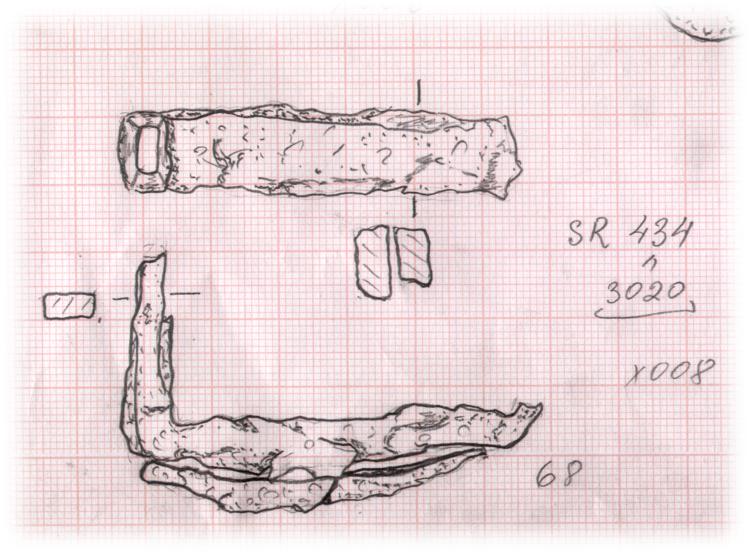 SR 434
^
3020
x008
68